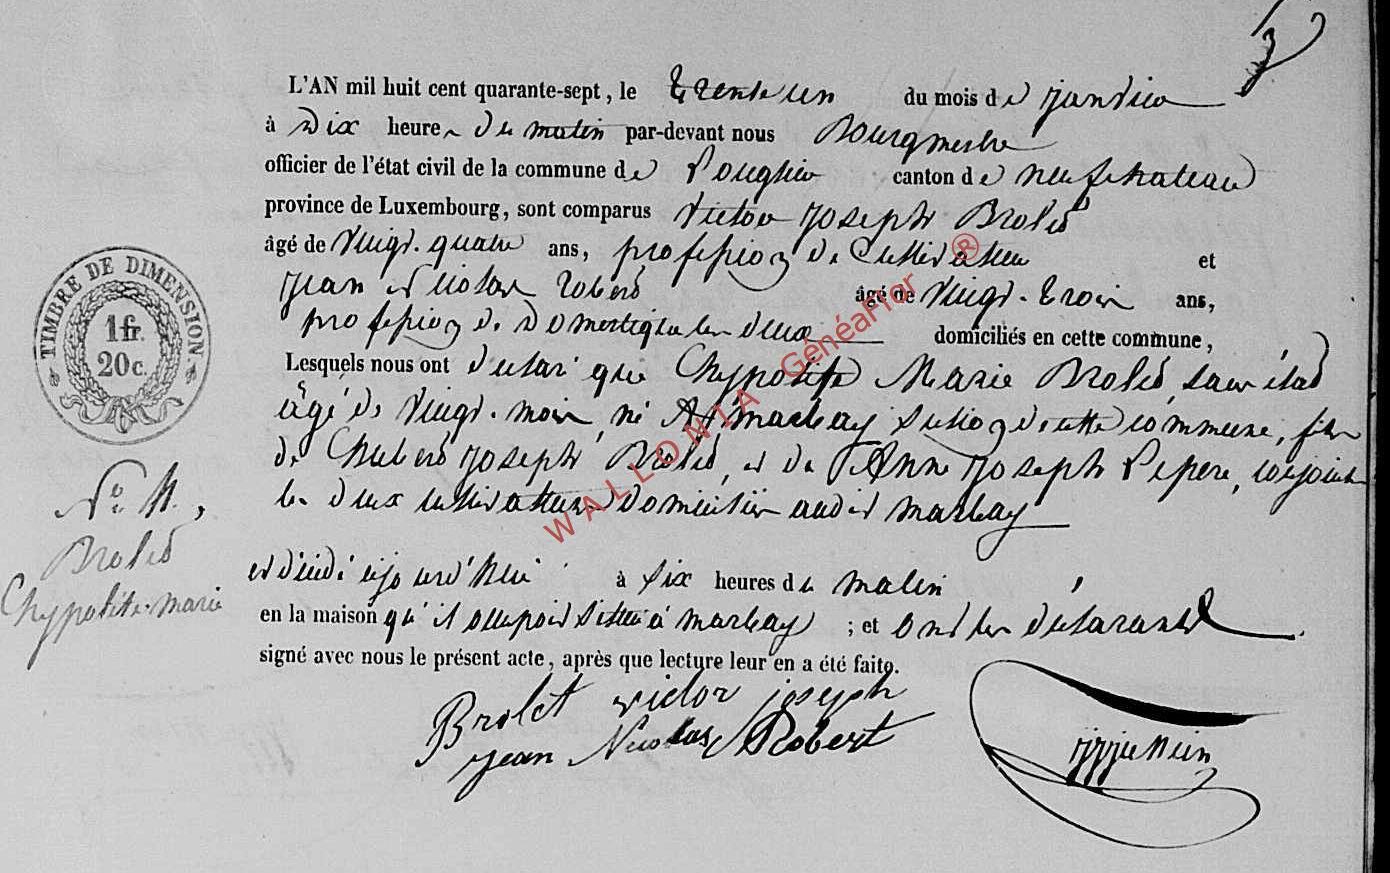 L'AN mil huit cent quarante-sept, le Trente un du mois de janvier
à Dix heures du matin par-devant nous Bourgmestre
officier de l'état civil de la commune de Longlier canton de neufchateau
province de Luxembourg, sont comparus Victor Joseph Brolet
âgé de Vingt-quatre ans, profession de Cultivateur et
Jean Nicolas Robert âgé de Vingt-trois ans,
profession de Domestique les deux domiciliés en cette commune,
Lesquels nous ont declaré que Chypolite Marie Brolet, sans état
âgé de Vingt-mois, né à Marbay section de cette commune, fils
de Chubert Joseph Brolet, et de Anne Joseph Pepere, conjoints
les deux cultivateurs Domiciliés audit Marbay
est décédé aujourd'hui à six heures du matin
en la maison qu'il occupoit située à Marbay ; et ont les déclarants
signé avec nous le présent acte, après que lecture leur en a été faite.
Brolet victor joseph
jean Nicolas Robert
TIMBRE DE DIMENSION.
1 fr.
20 c.
N°
Brolet
Chypolite-marie
WALLONIA GénéaFfor ®